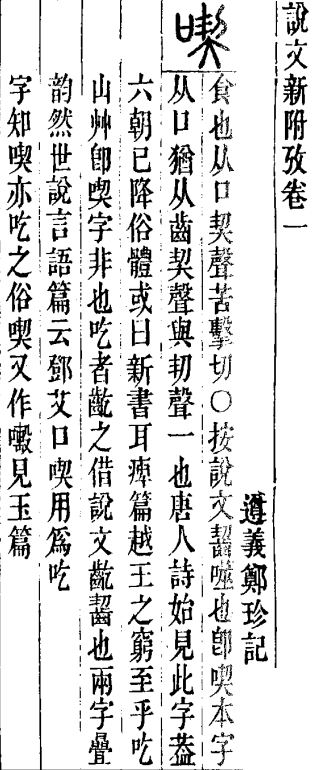 說文新附攷卷一
遵義鄭珍記
喫
食也从口契聲苦擊切○按說文齧噬也卽喫本字
从口猶从齒契聲與㓞聲一也唐人詩始見此字葢
六朝已降俗體或曰新書耳痺篇越王之窮至乎吃
山艸卽喫字非也吃者齕之借說文齕齧也兩字疊
韵然世說言語篇云鄧艾口喫用爲吃
字知喫亦吃之俗喫又作㗖見玉篇